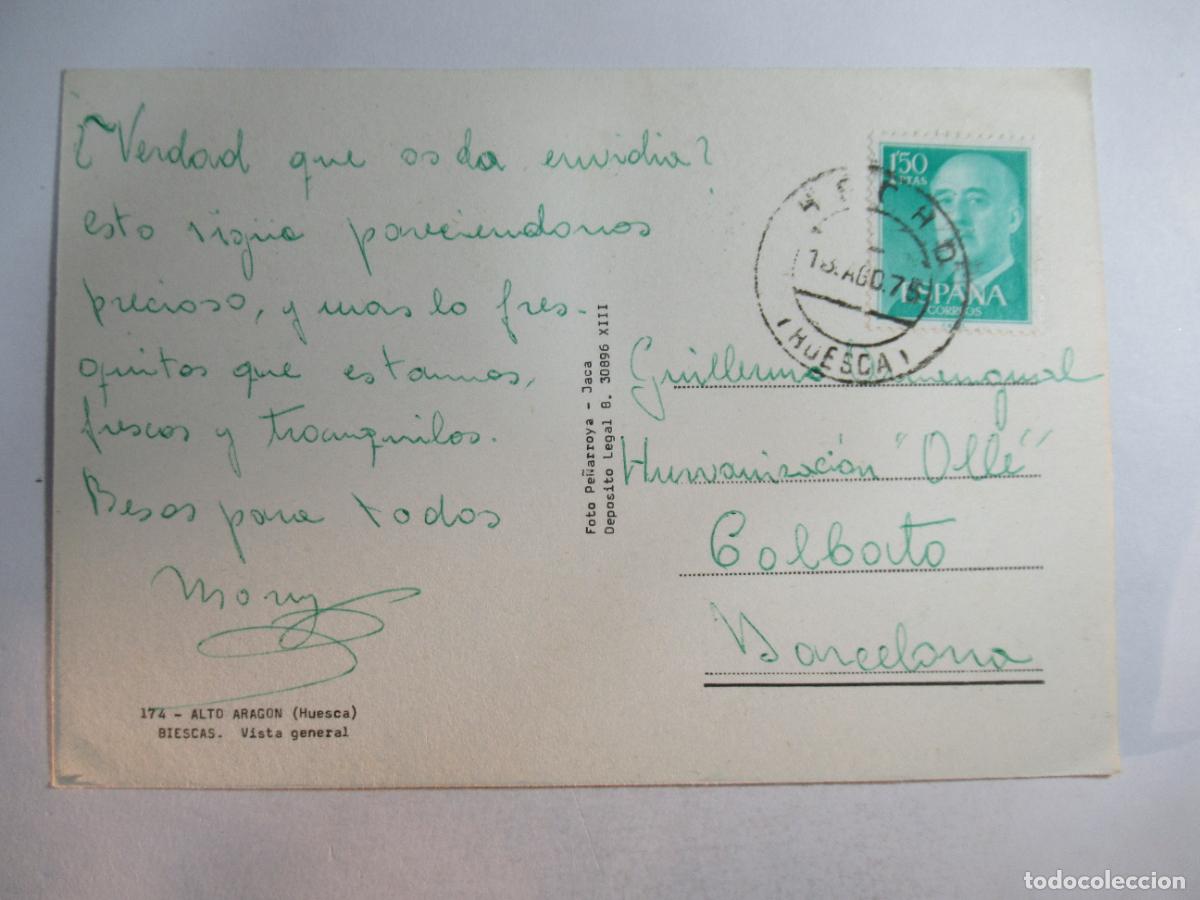 ¿Verdad que os da envidia?
esto sigue pareciendonos
precioso, y mas lo fres-
quitos que estamos,
frescos y tranquilos.
Besos para todos
174 - ALTO ARAGON (Huesca)
BIESCAS. Vista general
Foto Peñarroya - Jaca
Deposito Legal B. 30896 XIII
1'50
PTAS
ESPAÑA
CORREOS
HECHO
AGO.75
(HUESCA)
Guillermo
Hurvanización "Ollé"
Collbato
Barcelona
todocoleccion